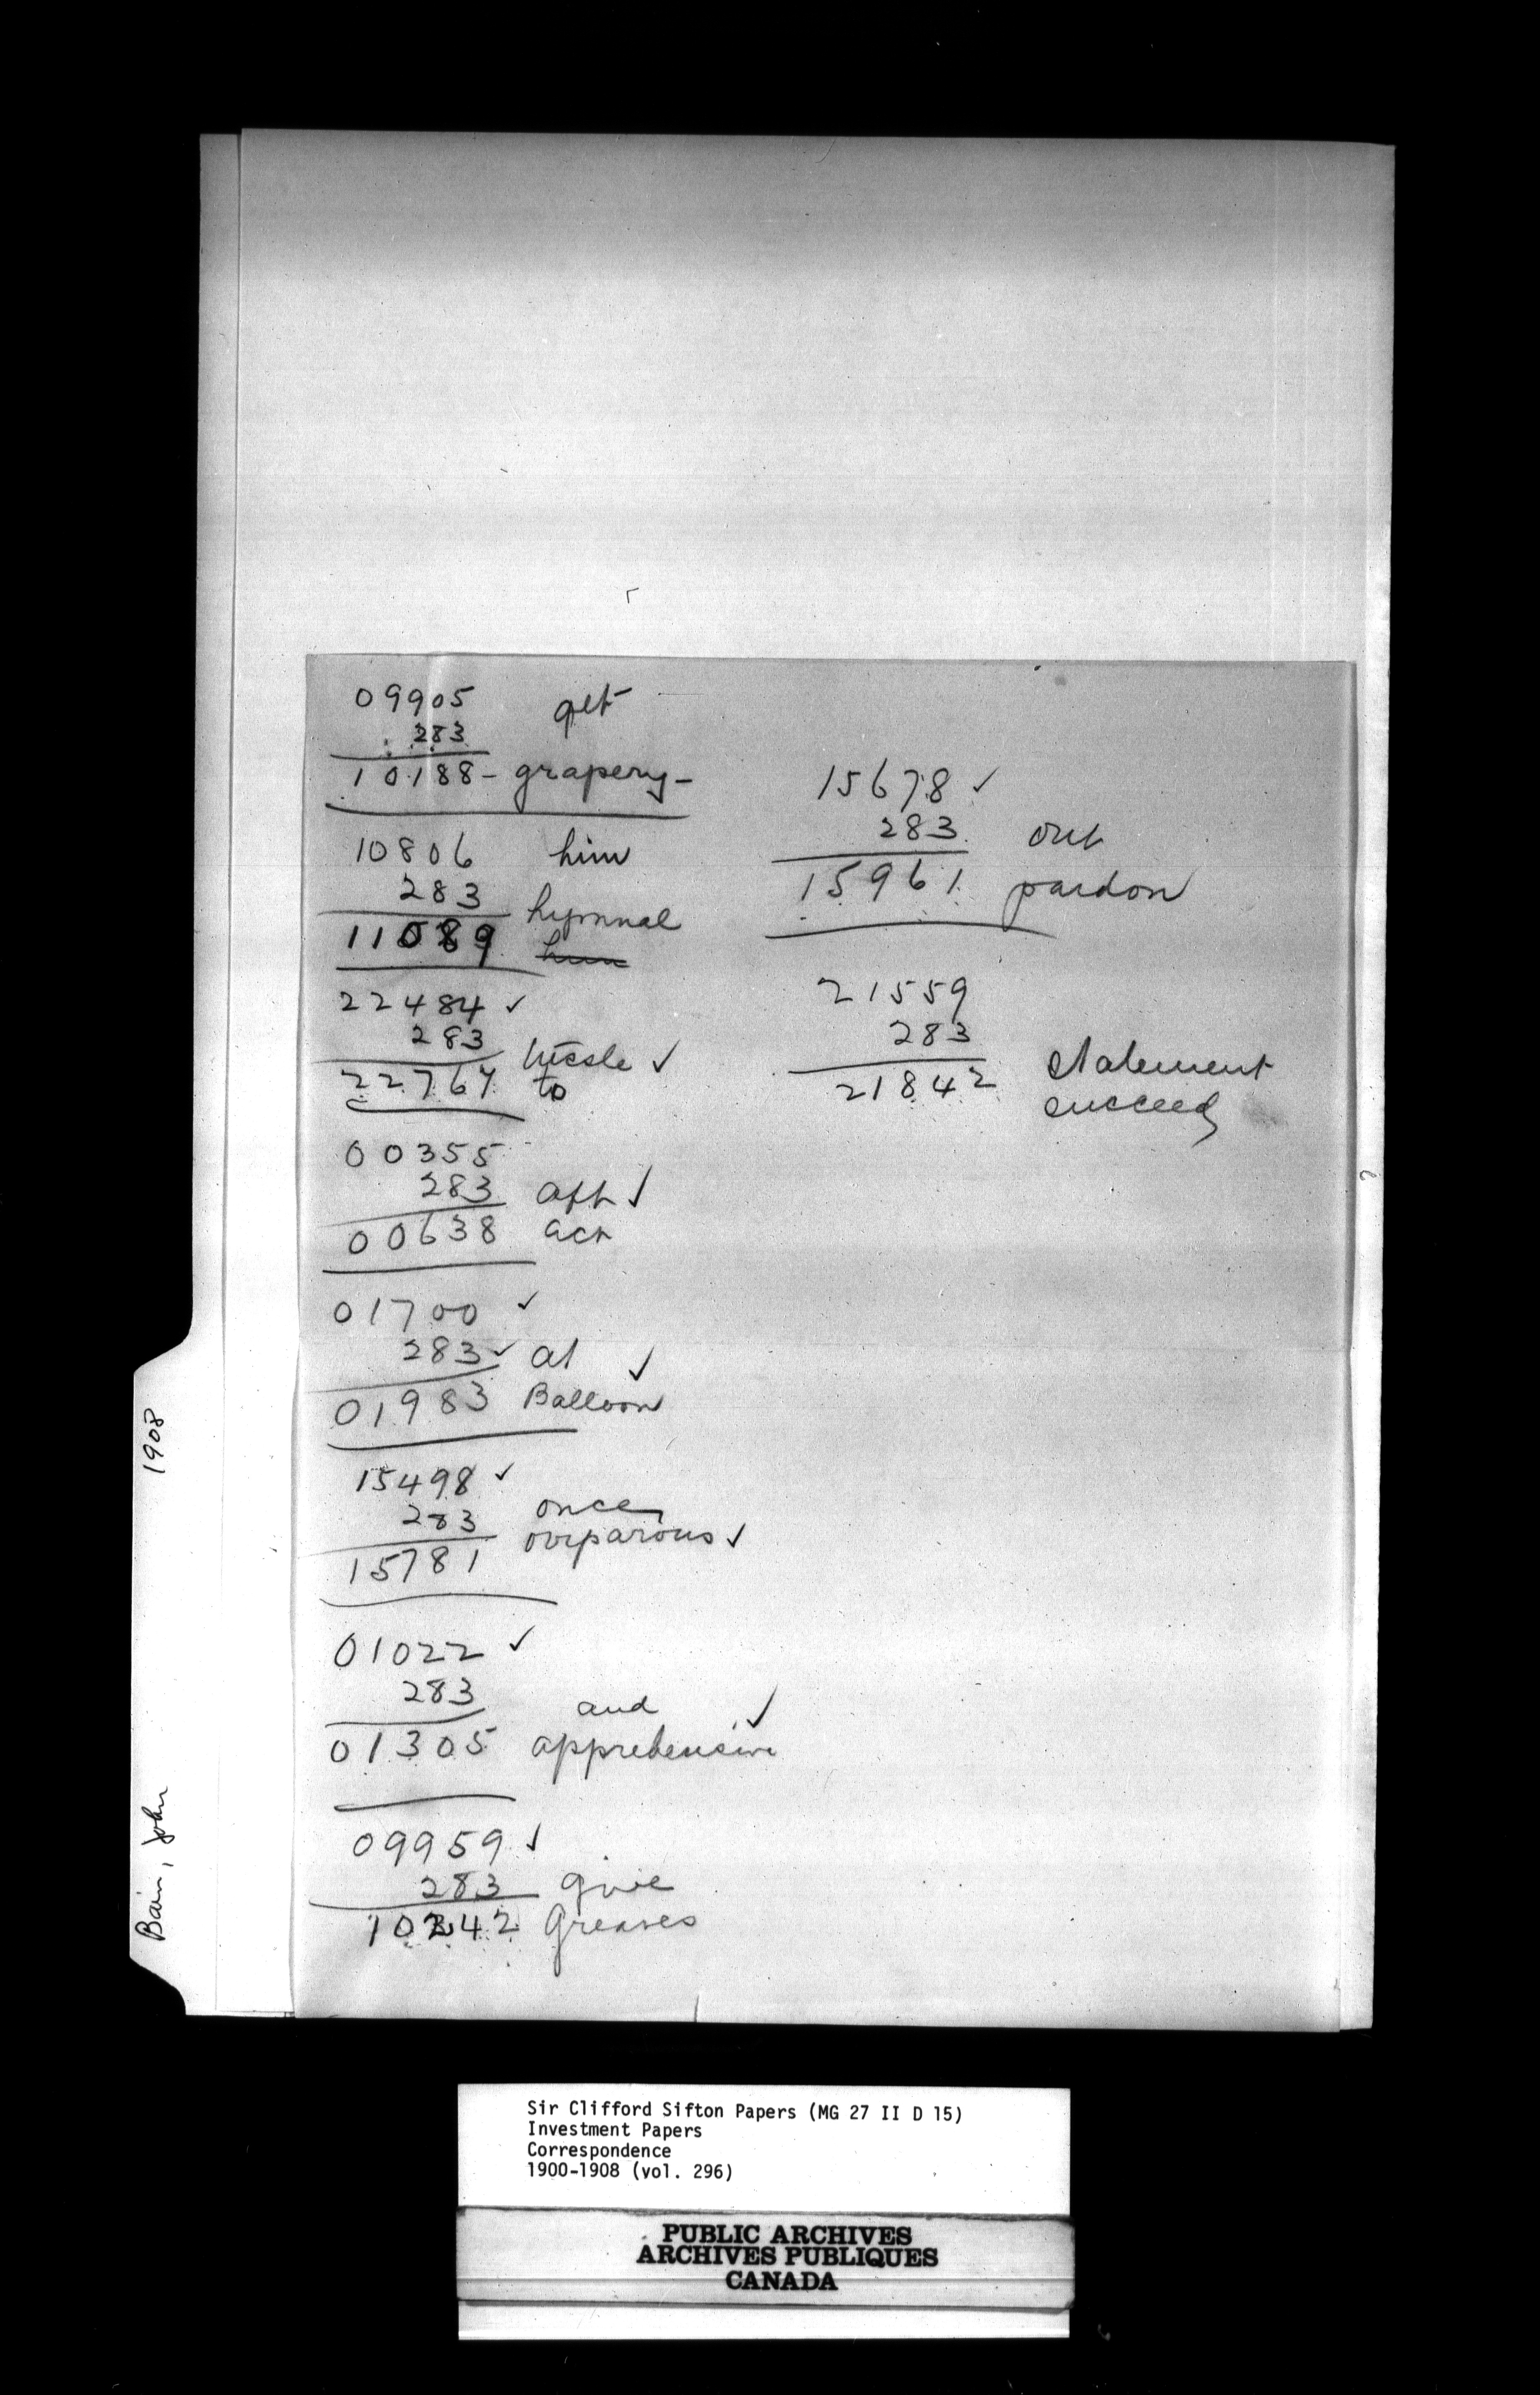 09905 get
283
10188 - grapery -
10806 him
283 hymnal
11089 him
22484 ✓
283 tussle ✓
22767 to
00355
283 aft ✓
00638 act
01700 ✓
283 ✓ at ✓
01983 Balloon
15498 ✓
283 once
15781 oviparous ✓
01022 ✓
283 and ✓
01305 apprehensive
09959 ✓
283 give
10242 Greaves
15678 ✓
283 out
15961 pardon
21559
283
21842 statement
succeed
1908
Bain, John
Sir Clifford Sifton Papers (MG 27 II D 15)
Investment Papers
Correspondence
1900-1908 (vol. 296)
PUBLIC ARCHIVES
ARCHIVES PUBLIQUES
CANADA